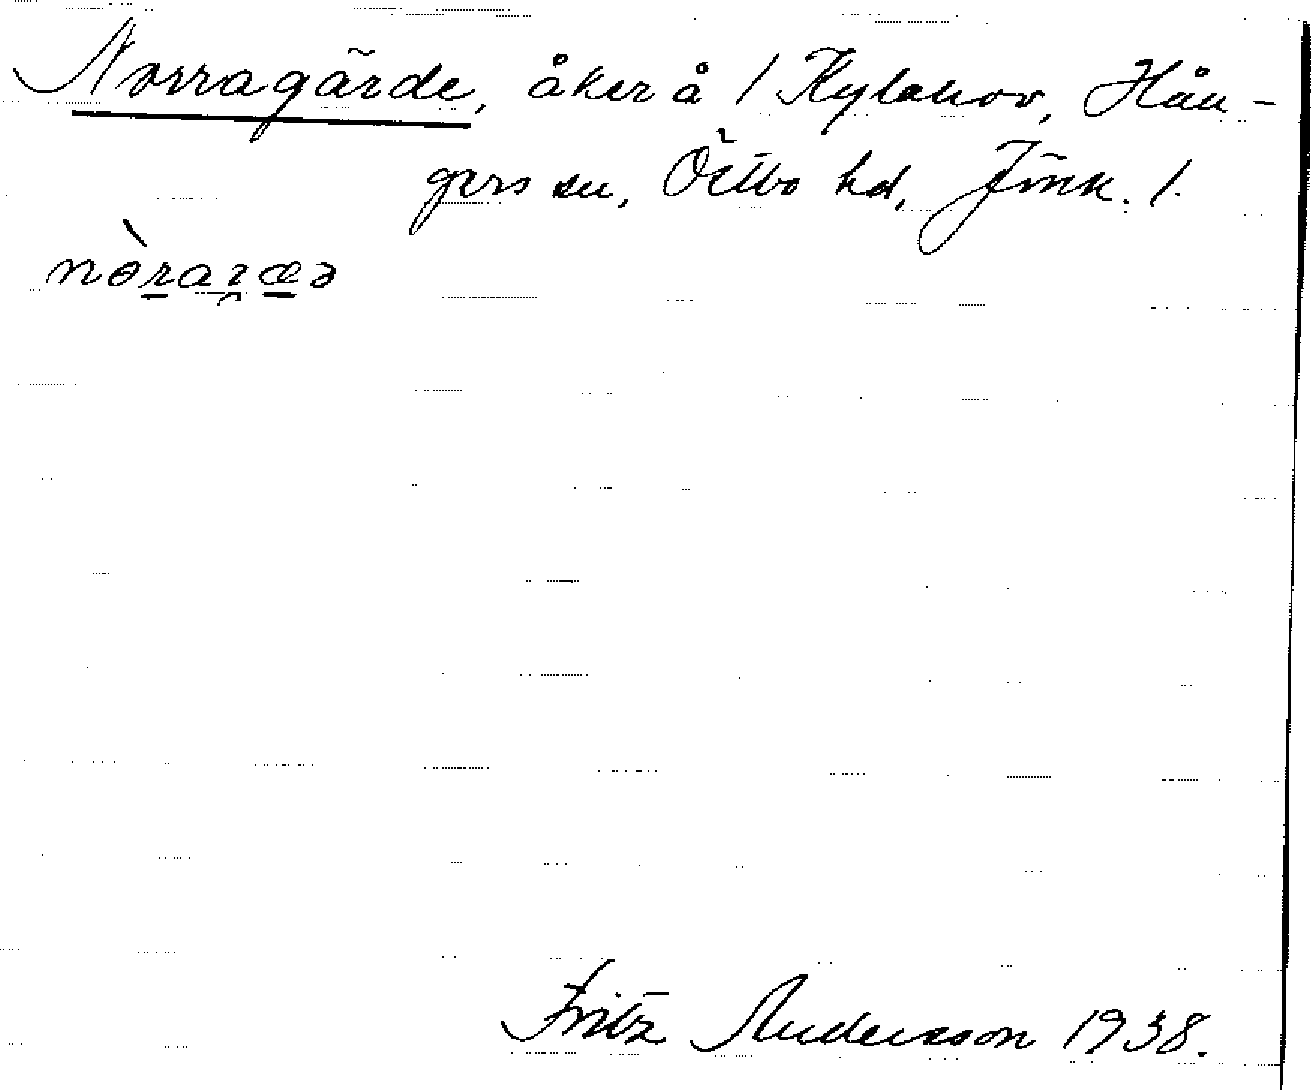 Norragärde, åker å 1 Kylahov, Hån-
gers sn, Östbo hd, Jönk. l.
nòraɿæə
Fritz Andersson 1938.